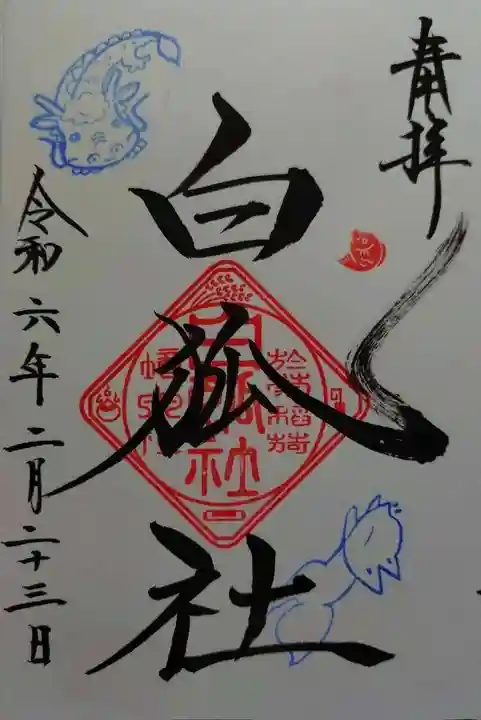 奉拝
白狐社
令和六年二月二十三日